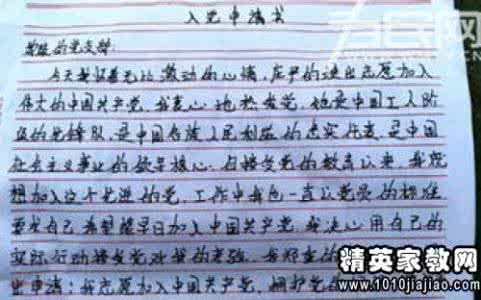 入党申请书
尊敬的党支部:
今天我怀着无比激动的心情,庄严的提出志愿加入
伟大的中国共产党,我衷心地热爱党,她是中国工人阶
级的先锋队,是中国各族人民利益的忠实代表,是中国
社会主义事业的领导核心,自接受党的教育以来,我就
想加入这个先进的党,工作中我也一直以党员的标准
要求自己希望能早日加入中国共产党,我决心用自己的
实际行动接受党对我的考验,我郑重的
出申请:我志愿加入中国共产党,拥护党的
为民网
精英家教网
www.1010jiajiao.com